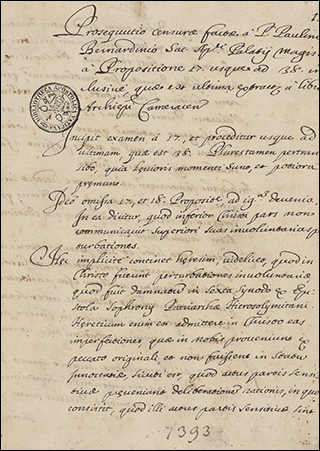 Prosequutio censuræ factæ à P. Paulino
Bernardinio Sac. Apl. Palatij Magis.
à Propositione 17. usque ad 38. in
clusiuè, quæ est ultima extract. à lib.
Archiepi Cameracen
Incipit examen à 17, et proceditur usque ad
ultimam, quæ est 38. Plures tamen pertran
sibo, quia leuioris momenti sunt, et potiora
premunt.
Ideò omissis 17, et 18. Proposit. ad 19.am deuenio.
In ea dicitur, quod inferior Christi pars non
communicauit Superiori suas inuoluntarias p
turbationes.
Hæc implicitè continet hæresim, videlicet, quod in
Christo fuerint perturbationes inuoluntariæ
quod fuit damnatum in Sexta Synodo ex Epi
stola Sophronij Patriarchæ Hierosolymitani
Hereticum enim est admittere in Christo eas
imperfectiones quæ in nobis proueniunt ex
peccato originali, et non fuissent in statu
innocentiæ, sicuti est, quod actus partis sensi
tiuæ præueniant deliberationem rationis, in quo
consistit, quod illi actus partis sensitiuæ sint
7393